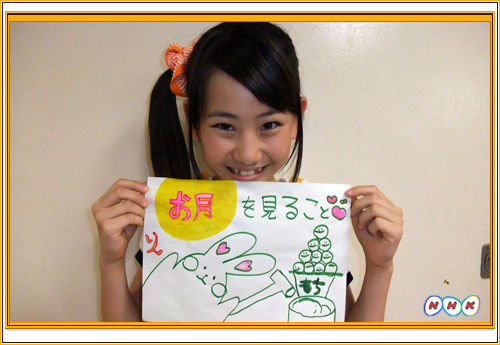 お月を見ること
りん
もち
NHK